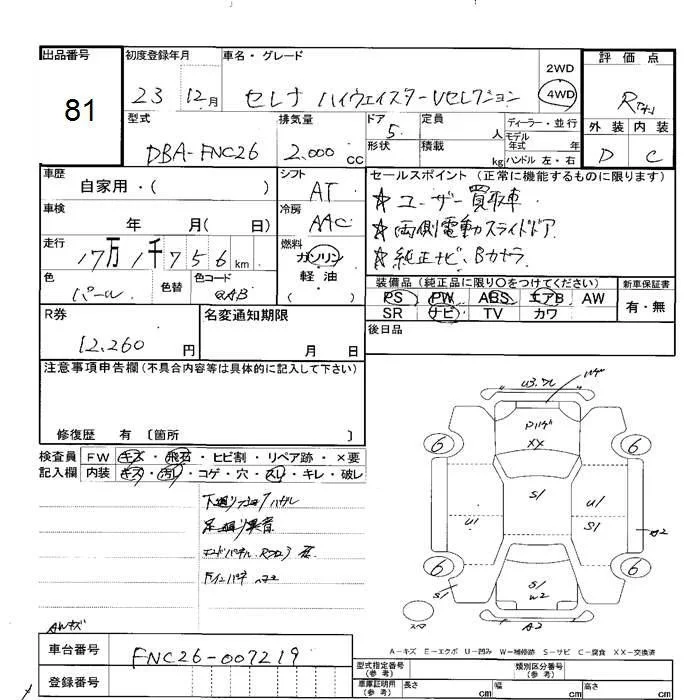 出品番号
81
初度登録年月
23 12月
車名・グレード
セレナ ハイウェイスターVセレクション
2WD
4WD
評価点
R
外装 内装
D C
型式
DBA-FNC26
排気量
2.000cc
ドア
5
形状
定員
人
積載
kg
ディーラー・並行
モデル
年式 年
ハンドル 左・右
車歴
自家用・( )
車検
年 月( 日)
走行
17万1千756km
色
パール
色替
色コード
QAB
シフト
AT
冷房
AAC
燃料
ガソリン
軽油
( )
セールスポイント(正常に機能するものに限ります)
☆ユーザー買取車
☆両側電動スライドドア
☆純正ナビ、Bカメラ
装備品(純正品に限り○をつけてください)
PS PW ABS エアB AW
SR ナビ TV カワ
新車保証書
有・無
後日品
R券
12,260円
名変通知期限
月 日
注意事項申告欄(不具合内容等は具体的に記入して下さい)
修復歴 有 〔箇所 〕
検査員
記入欄
FW キズ・飛石・ヒビ割・リペア跡・×要
内装 キズ・汚レ・コゲ・穴・スレ・キレ・破レ
AWキズ
U3.ワレ
XX
6
6
S1
U1
U1
S1
A2
6
6
S1
S1
W2
A2
スペア
A-キズ E-エクボ U-凹み W-補修跡 S-サビ C-腐食 XX-交換済
車台番号
FNC26-007219
登録番号
型式指定番号
(参考)
類別区分番号
(参考)
車庫証明用
(参考)
長さ cm
幅 cm
高さ cm